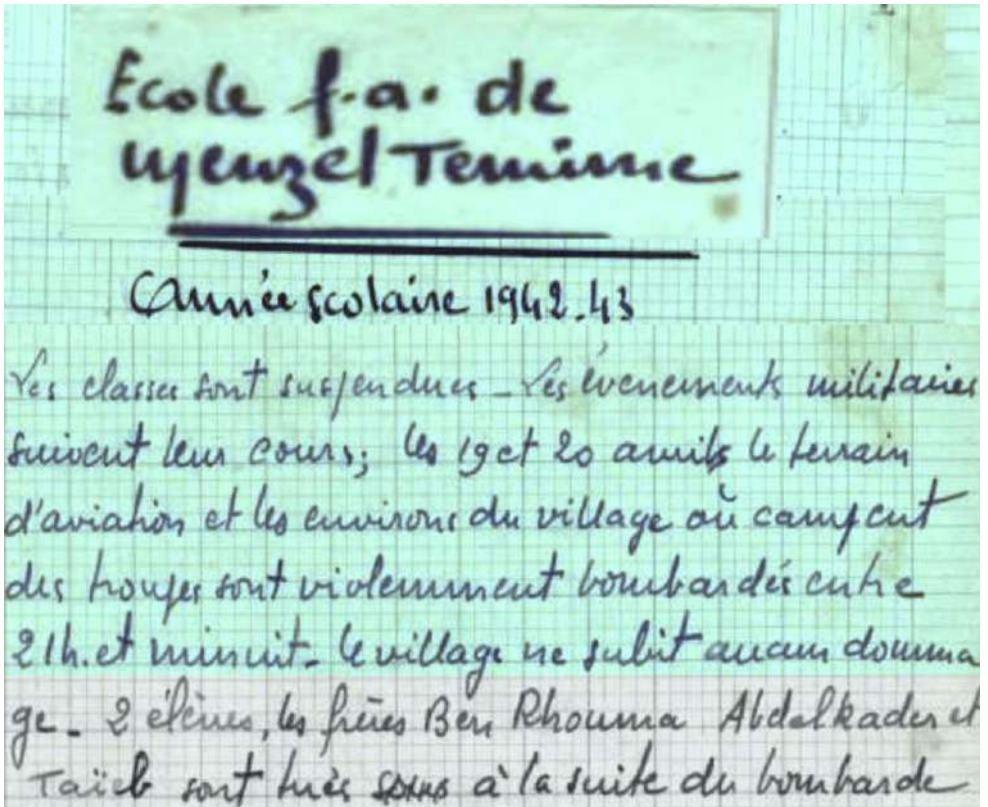 Ecole f.a. de
Menzel Temime
Année scolaire 1942-43
Les classes sont suspendues - Les évenements militaires
suivent leur cours; les 19 et 20 avril le terrain
d'aviation et les environs du village où campent
des troupes sont violemment bombardés entre
21h. et minuit - le village ne subit aucun domma
ge - 2 élèves, les frères Ben Rhouma Abdelkader et
Taïeb sont tués à la suite du bombarde